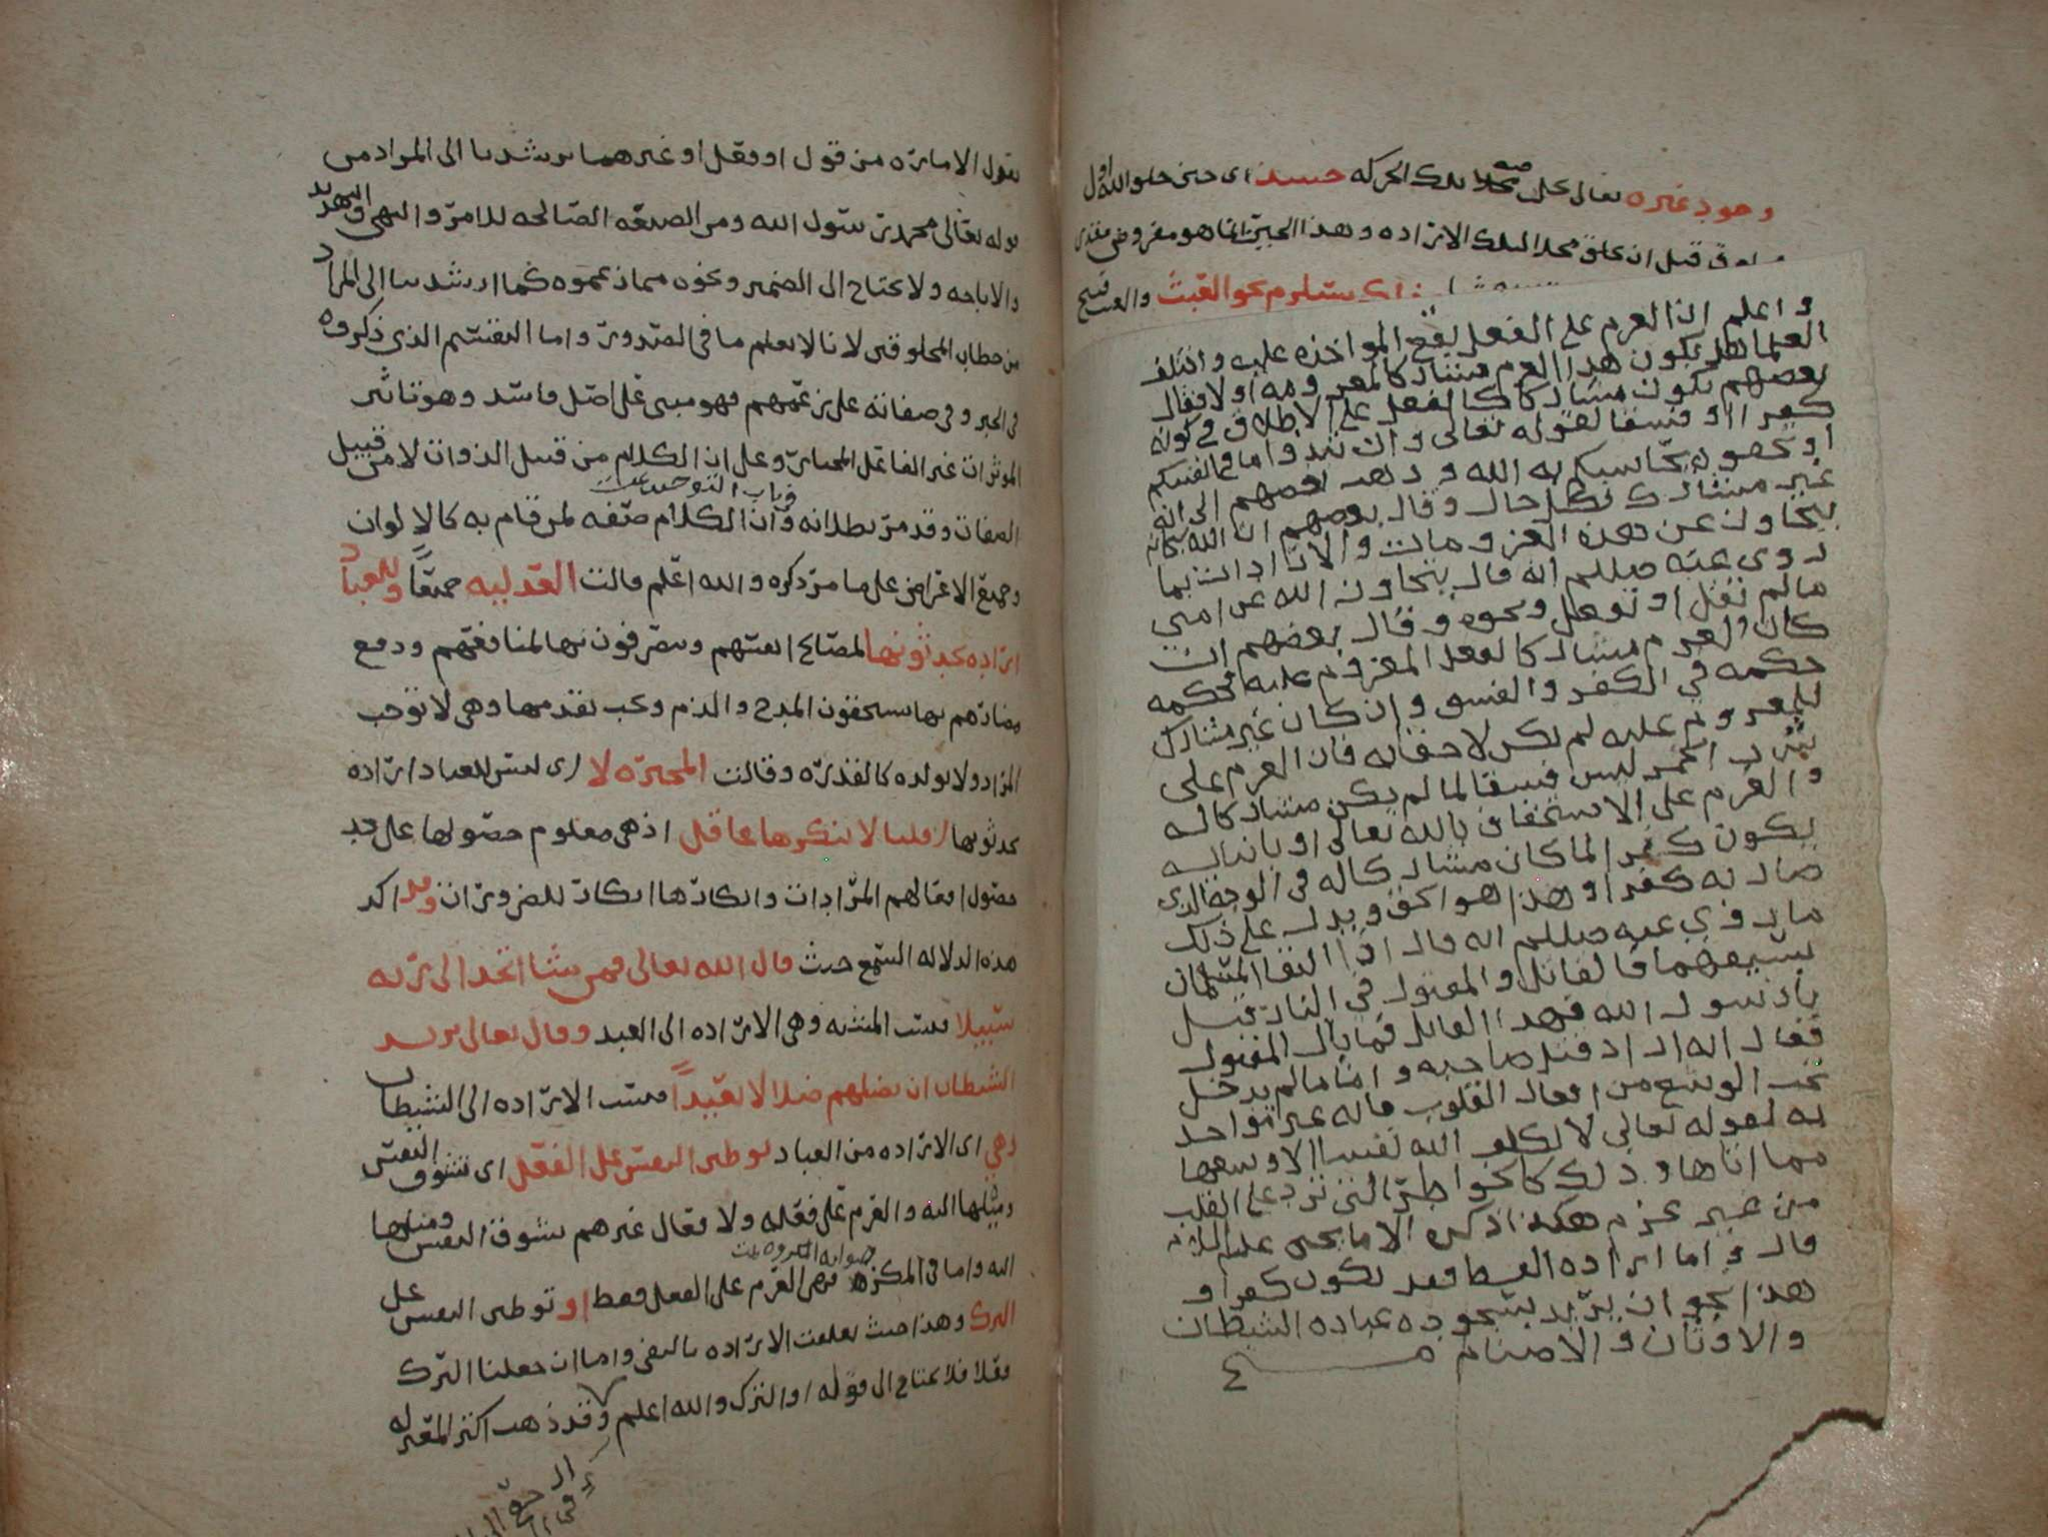 وجود غيره تعالى محل تلك الحركه حينئذ اى حين خلق الله اول
قبل ان يخلق محلا لتلك الاراده وهذا الحين انما هو مفروض مقدر
يستلزم نحو العبث والعبث قبيح
واعلم ان العزم على الفعل يقع المواخذه عليه واختلف
العلما هل يكون هذا العزم مشاركا للمعزوم او لا فقال
بعضهم يكون مشاركا للفعل على الاطلاق في كونه
كفرا او فسقا لقوله تعالى وان تبدوا ما في انفسكم
او تخفوه يحاسبكم به الله وذهب بعضهم الى انه
غير مشارك بكل حال وقال بعضهم ان الله سبحانه
يتجاوز عن هذه العزومات والارادات بما
روى عنه صللم انه قال يتجاوز الله عن امتي
مالم تقل او تفعل ونحوه وقال بعضهم ان
كان العزم مشاركا لفعل المعزوم عليه فحكمه
حكمه في الكفر والفسق وان كان غير مشارك
للمعزوم عليه لم يكن لاحقا به فان العزم على
شرب الخمر ليس فسقا لما لم يكن مشاركا له
والعزم على الاستخفاف بالله تعالى او بانبيائه
يكون كفرا لما كان مشاركا له في الوجه الذي
صار به كفرا وهذا هو الحق ويدل على ذلك
ما روي عنه صللم انه قال اذا التقا المسلمان
بسيفهما فالقاتل والمقتول في النار قيل
يا رسول الله فهذا القاتل فما بال المقتول
فقال انه اراد قتل صاحبه واما مالم يدخل
تحت الوسع من افعال القلوب فانه غير مواخذ
به لقوله تعالى لا يكلف الله نفسا الا وسعها
مما اتاها وذلك كالخواطر التي ترد على القلب
من غير عزم هكذا ذكره الامام يحيى عليه السلام
قال واما اراده القسط فقد يكون كفرا و
هذا نحو ان يريد بسجوده عباده الشيطان
والاوثان والاصنام
يقول الاماره من قول او فعل او غيرهما يرشدنا الى المراد من
قوله تعالى محمد رسول الله ومن الصيغه الصالحه للامر والنهى والتهديد
والاباحه ولا يحتاج الى الضمير ونحوه مما زعموه كما ارشدنا الى المراد
من خطاب المخلوقين لانا لا نعلم ما فى الصدور واما التقسيم الذي ذكروه
فى الخبر وفى صفاته على زعمهم فهو مبنى على اصل فاسد وهو تاثير
الموثرات غير الفاعل المختار وعلى ان الكلام من قبيل الذوات لا من قبيل
الصفات وقد مر بطلانه فى باب التوحيد وان الكلام صفه لمن قام به كالالوان
وجميع الاعراض على ما مر ذكره والله اعلم قالت العدليه جميعا وللعباد
اراده يحدثونها لمصالح انفسهم ويتصرفون بها لمنافعهم ودفع
مضارهم بها يستحقون المدح والذم ويجب تقدمها وهى لا توجب
المراد ولا تولده كالقدره وقالت المجبره لا اى ليس للعباد اراده
يحدثونها قلنا لا ينكرها عاقل اذ هى معلوم حصولها على حد
حصول افعالهم المرادات وانكارها انكار للضروريات وقد اكد
هذه الدلاله السمع حيث قال الله تعالى فمن شا اتخذ الى ربه
سبيلا فنسب المشيه وهى الاراده الى العبد وقال تعالى يريد
الشيطان ان يضلهم ضلالا بعيدا فنسب الاراده الى الشيطان
وهي اى الاراده من العباد توطين النفس على الفعل اى تشوف النفس
وميلها اليه والعزم على فعله ولا فعال غيرهم تشوف النفس وميلها
اليه واما فى المكره صوابه المكروه تمت فهى العزم على الفعل فقط او توطين النفس على
الترك وهذا حيث تعلقت الاراده بالنفى واما ان جعلنا الترك
فعلا فلا يحتاج الى قوله او الترك والله اعلم وقد ذهب اكثر المعتزله